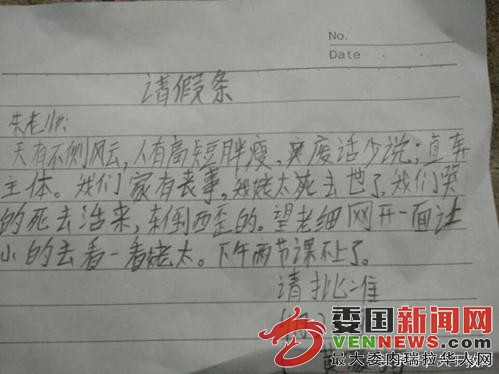 No.
Date
请假条
朱老师:
天有不侧风云,人有高短胖瘦、废话少说;直奔
主体。我们家有丧事,我姥太死去也了,我们哭
的死去活来,东倒西歪的。望老细网开一面让
小的去看一看姥太。下午两节课不上了。
请批准
委国新闻网
VENNEWS.COM
最大委内瑞拉华人网